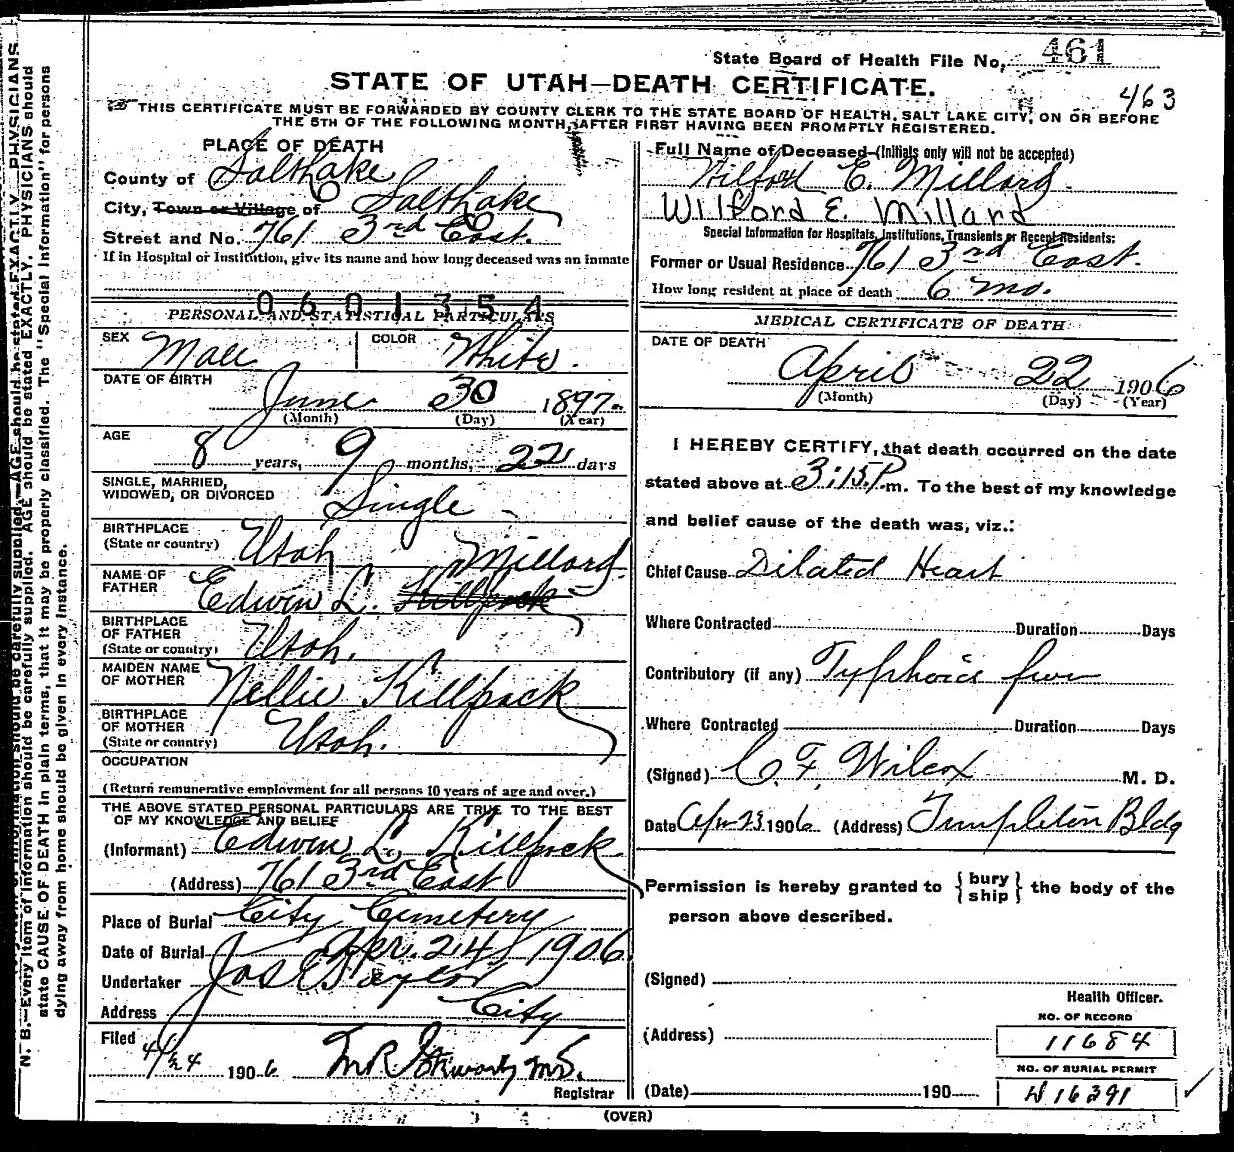 State Board of Health File No. 461
STATE OF UTAH—DEATH CERTIFICATE.
463
THIS CERTIFICATE MUST BE FORWARDED BY COUNTY CLERK TO THE STATE BOARD OF HEALTH, SALT LAKE CITY, ON OR BEFORE
THE 5TH OF THE FOLLOWING MONTH, AFTER FIRST HAVING BEEN PROMPTLY REGISTERED.
PLACE OF DEATH
County of Salt Lake
City, Town or Village of Salt Lake
Street and No. 761 3rd East.
If in Hospital or Institution, give its name and how long deceased was an inmate
0601354
PERSONAL AND STATISTICAL PARTICULARS
SEX Male COLOR White.
DATE OF BIRTH June 30 1897.
(Month) (Day) (Year)
AGE 8 years, 9 months, 22 days
SINGLE, MARRIED,
WIDOWED, OR DIVORCED Single
BIRTHPLACE
(State or country) Utah
NAME OF
FATHER Edwin L. Killpack Millard
BIRTHPLACE
OF FATHER
(State or country) Utah.
MAIDEN NAME
OF MOTHER Nellie Killpack
BIRTHPLACE
OF MOTHER
(State or country) Utah.
OCCUPATION
(Return remunerative employment for all persons 10 years of age and over.)
THE ABOVE STATED PERSONAL PARTICULARS ARE TRUE TO THE BEST
OF MY KNOWLEDGE AND BELIEF
(Informant) Edwin L. Killpack
(Address) 761 3rd East
Place of Burial City Cemetery
Date of Burial Apr. 24 1906
Undertaker Jos E Taylor
Address City
Filed 4/24 1906
Registrar
Full Name of Deceased (Initials only will not be accepted)
Wilford E. Millard
Wilford E. Millard
Special Information for Hospitals, Institutions, Transients or Recent Residents:
Former or Usual Residence 761 3rd East.
How long resident at place of death 6 mo.
MEDICAL CERTIFICATE OF DEATH
DATE OF DEATH
April 22 1906
(Month) (Day) (Year)
I HEREBY CERTIFY, that death occurred on the date
stated above at 3:15 P m. To the best of my knowledge
and belief cause of the death was, viz.:
Chief Cause Dilated Heart
Where Contracted Duration Days
Contributory (if any) Typhoid fever
Where Contracted Duration Days
(Signed) C. F. Wilcox M. D.
Date Apr 23 1906 (Address) Templeton Bldg
Permission is hereby granted to { bury ship } the body of the
person above described.
(Signed)
Health Officer.
(Address)
NO. OF RECORD
11684
NO. OF BURIAL PERMIT
(Date) 190
16391
(OVER)
N. B.—Every item of information should be carefully supplied. AGE should be stated EXACTLY. PHYSICIANS should
state CAUSE OF DEATH in plain terms, that it may be properly classified. The "Special Information" for persons
dying away from home should be given in every instance.